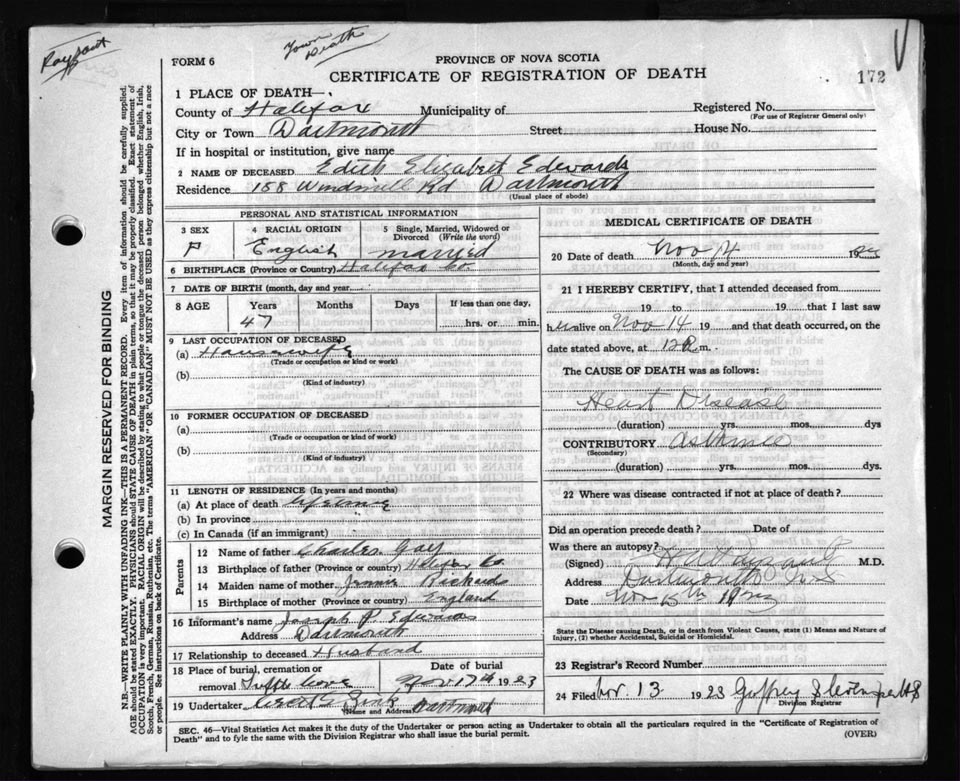 Town
Death
FORM 6
PROVINCE OF NOVA SCOTIA
CERTIFICATE OF REGISTRATION OF DEATH
172
1 PLACE OF DEATH—
County of Halifax Municipality of Registered No.
(For use of Registrar General only)
City or Town Dartmouth Street House No.
If in hospital or institution, give name
2 NAME OF DECEASED Edith Elizabeth Edwards
Residence 158 Windmill Rd Dartmouth
(Usual place of abode)
PERSONAL AND STATISTICAL INFORMATION
3 SEX 4 RACIAL ORIGIN 5 Single, Married, Widowed or Divorced (Write the word)
F English married
6 BIRTHPLACE (Province or Country) Halifax Co.
7 DATE OF BIRTH (month, day and year)
8 AGE Years Months Days If less than one day,
47 hrs. or min.
9 LAST OCCUPATION OF DECEASED
(a) Housewife
(Trade or occupation or kind or work)
(b)
(Kind of industry)
10 FORMER OCCUPATION OF DECEASED
(a)
(Trade or occupation or kind of work)
(b)
(Kind of industry)
11 LENGTH OF RESIDENCE (In years and months)
(a) At place of death lifetime
(b) In province
(c) In Canada (if an immigrant)
Parents
12 Name of father Charles Gay
13 Birthplace of father (Province or country) Halifax Co.
14 Maiden name of mother Jennie Richards
15 Birthplace of mother (Province or country) England
16 Informant's name Joseph P. Edwards
Address Dartmouth
17 Relationship to deceased Husband
18 Place of burial, cremation or removal Tufts Cove Date of burial Nov 17th 1923
19 Undertaker Dartmouth
(Name and Address)
MEDICAL CERTIFICATE OF DEATH
20 Date of death Nov 14 19
(Month, day and year)
21 I HEREBY CERTIFY, that I attended deceased from
19 to 19 that I last saw
her alive on Nov 14 19 and that death occurred, on the
date stated above, at 12 m.
The CAUSE OF DEATH was as follows:
Heart Disease
(duration) yrs. mos. dys
CONTRIBUTORY
(Secondary)
(duration) yrs. mos. dys.
22 Where was disease contracted if not at place of death?
Did an operation precede death? Date of
Was there an autopsy?
(Signed) M.D.
Address Dartmouth N.S.
Date Nov 15th
State the Disease causing Death, or in death from Violent Causes, state (1) Means and Nature of
Injury, (2) whether Accidental, Suicidal or Homicidal.
23 Registrar's Record Number
24 Filed Nov. 13 1923 Geffrey
Division Registrar
SEC. 46—Vital Statistics Act makes it the duty of the Undertaker or person acting as Undertaker to obtain all the particulars required in the "Certificate of Registration of
Death" and to fyle the same with the Division Registrar who shall issue the burial permit. (OVER)
MARGIN RESERVED FOR BINDING
N.B.—WRITE PLAINLY WITH UNFADING INK—THIS IS A PERMANENT RECORD. Every item of information should be carefully supplied.
AGE should be stated EXACTLY. PHYSICIANS should STATE CAUSE OF DEATH in plain terms, so that it may be properly classified. Exact statement of
OCCUPATION is very important. RACIAL ORIGIN will be described by stating to what people or tongue the deceased person belonged whether English, Irish,
Scotch, French, German, Russian, Ruthenian, etc. The terms "AMERICAN" OR "CANADIAN" MUST NOT BE USED as they express citizenship but not a race
or people. See instructions on back of Certificate.